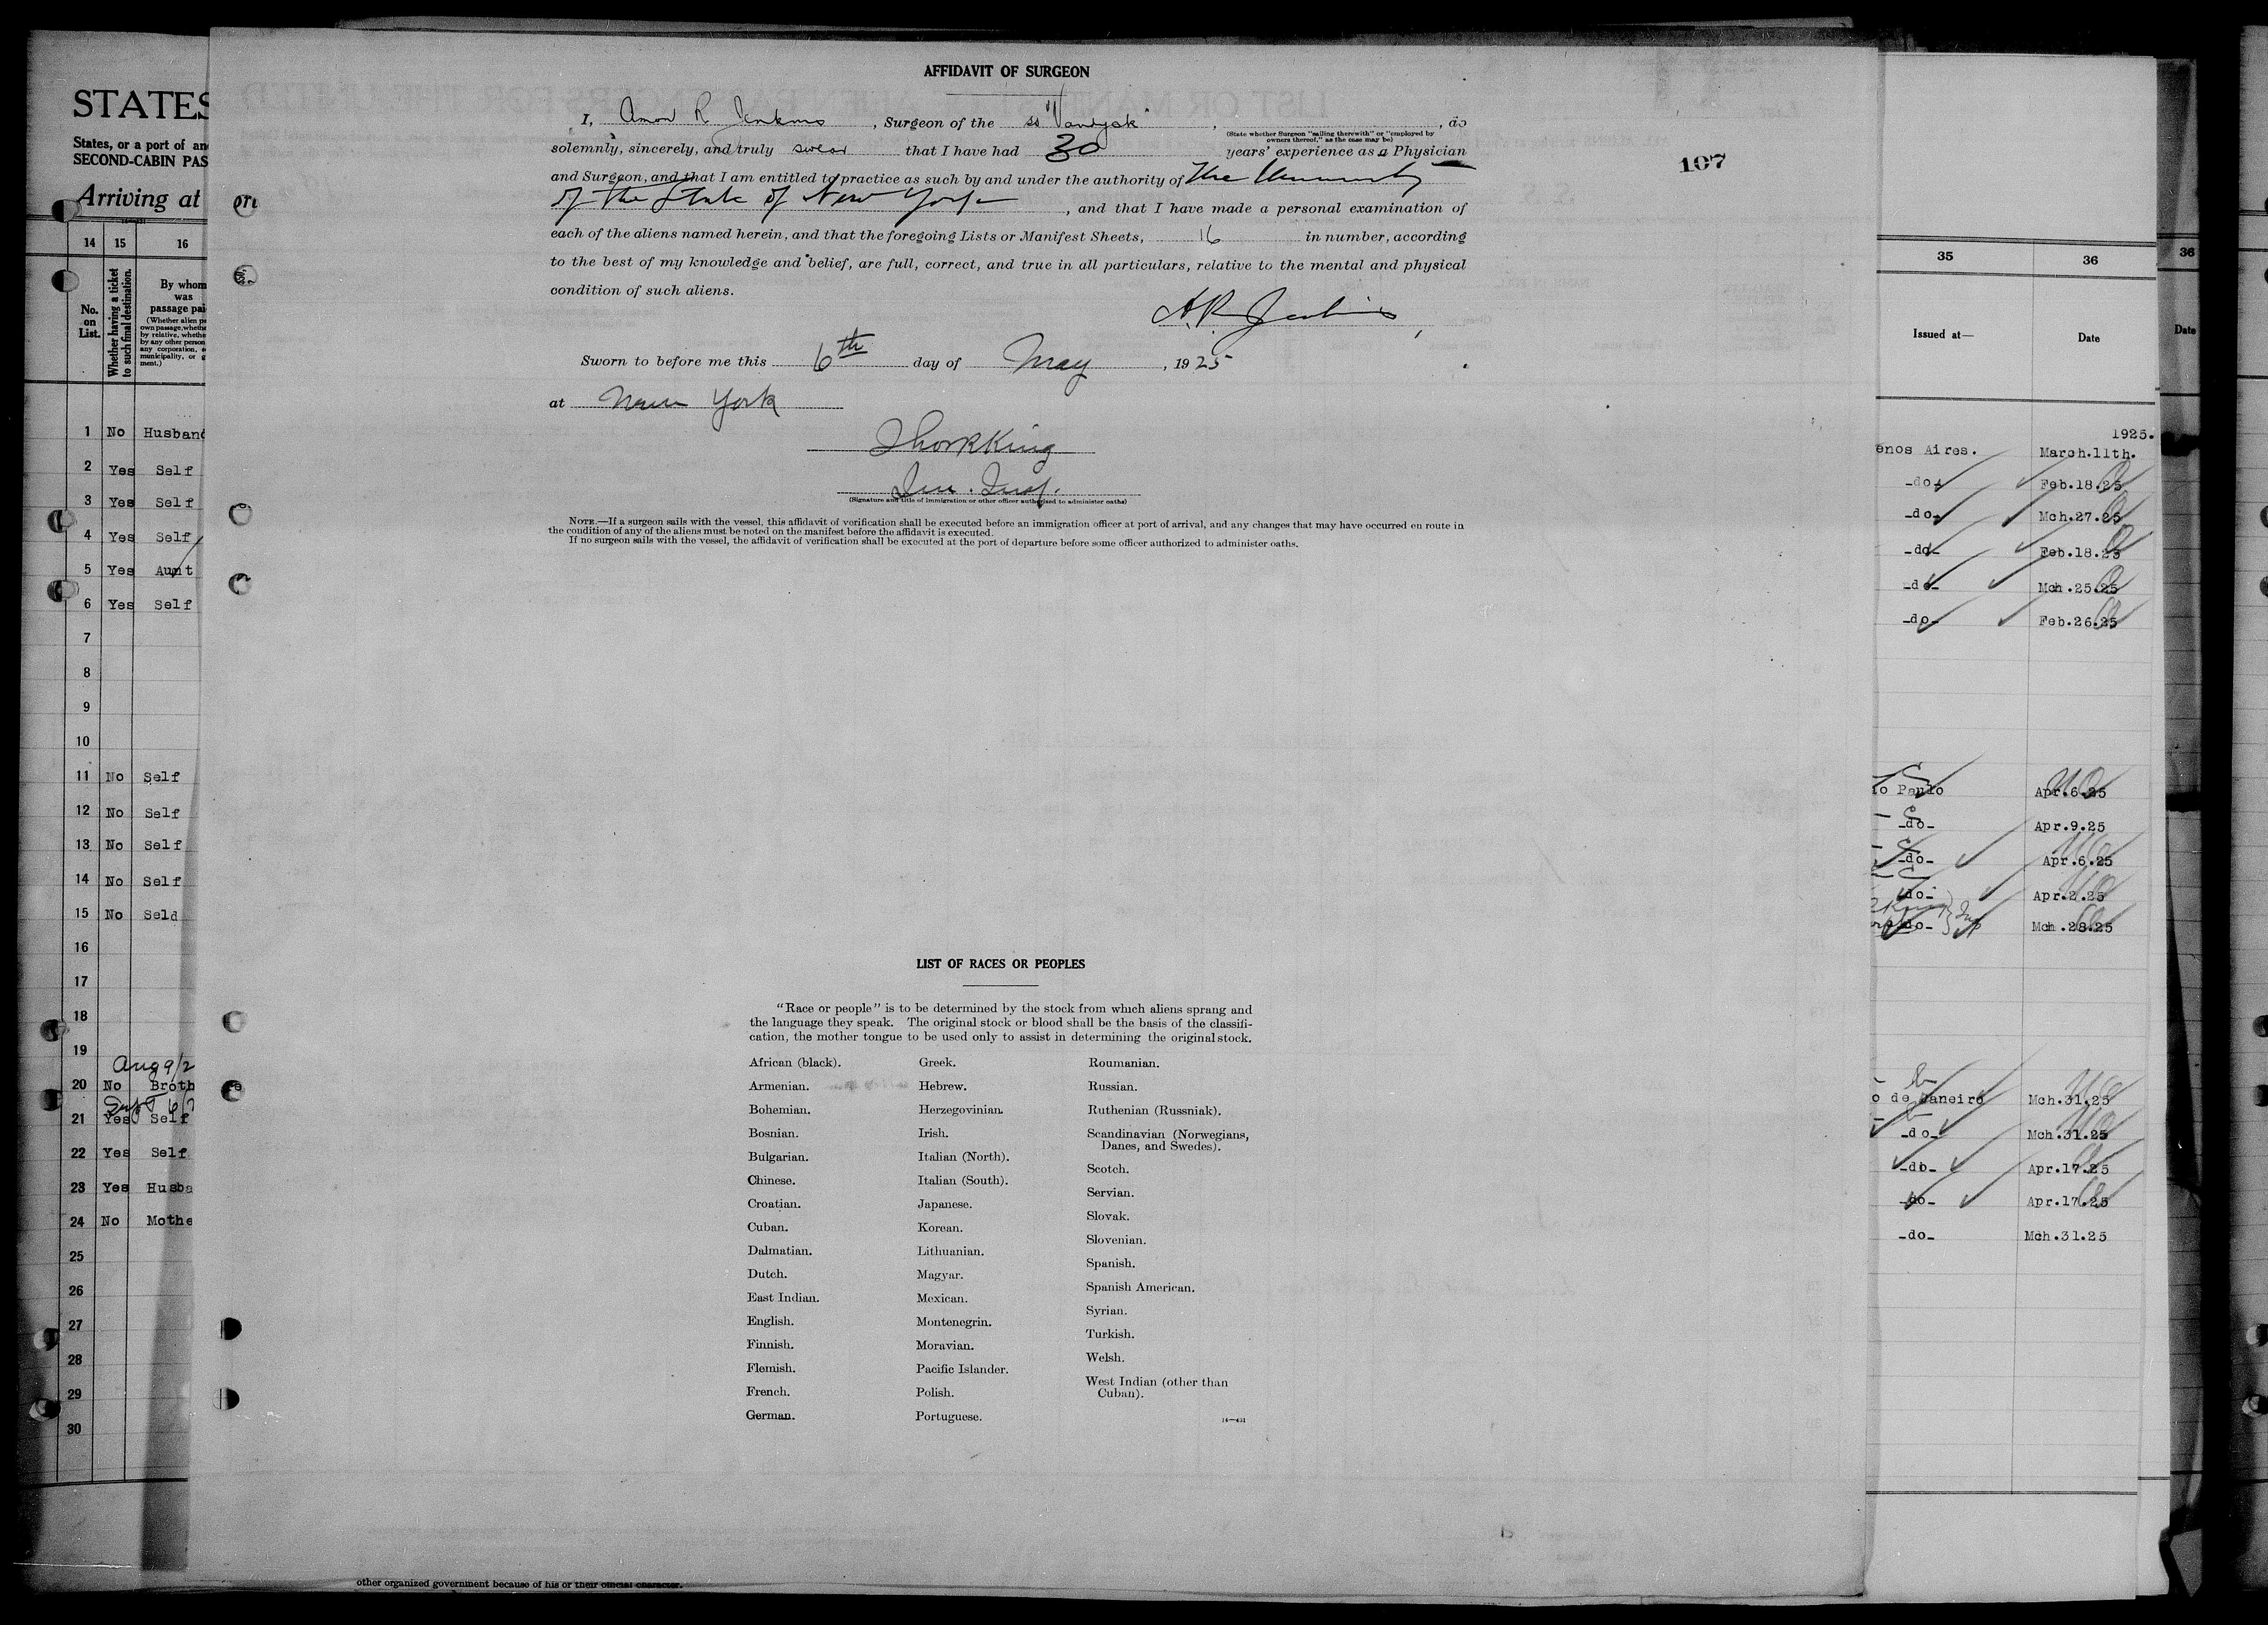 AFFIDAVIT OF SURGEON
I, Amon R Jenkins, Surgeon of the ss "Vandyck", , do
(State whether Surgeon "sailing therewith" or "employed by
owners thereof," as the case may be)
solemnly, sincerely, and truly swear that I have had 30 years' experience as a Physician
107
and Surgeon, and that I am entitled to practice as such by and under the authority of The University
of the State of New York, and that I have made a personal examination of
each of the aliens named herein, and that the foregoing Lists or Manifest Sheets, 16 in number, according
to the best of my knowledge and belief, are full, correct, and true in all particulars, relative to the mental and physical
condition of such aliens.
A.R. Jenkins
Sworn to before me this 6th day of May, 1925
at New York
King
Imm. Insp.
(Signature and title of immigration or other officer authorized to administer oaths)
NOTE.—If a surgeon sails with the vessel, this affidavit of verification shall be executed before an immigration officer at port of arrival, and any changes that may have occurred en route in
the condition of any of the aliens must be noted on the manifest before the affidavit is executed.
If no surgeon sails with the vessel, the affidavit of verification shall be executed at the port of departure before some officer authorized to administer oaths.
LIST OF RACES OR PEOPLES
"Race or people" is to be determined by the stock from which aliens sprang and
the language they speak. The original stock or blood shall be the basis of the classifi-
cation, the mother tongue to be used only to assist in determining the original stock.
African (black).
Armenian.
Bohemian.
Bosnian.
Bulgarian.
Chinese.
Croatian.
Cuban.
Dalmatian.
Dutch.
East Indian.
English.
Finnish.
Flemish.
French.
German.
Greek.
Hebrew.
Herzegovinian.
Irish.
Italian (North).
Italian (South).
Japanese.
Korean.
Lithuanian.
Magyar.
Mexican.
Montenegrin.
Moravian.
Pacific Islander.
Polish.
Portuguese.
Roumanian.
Russian.
Ruthenian (Russniak).
Scandinavian (Norwegians,
Danes, and Swedes).
Scotch.
Servian.
Slovak.
Slovenian.
Spanish.
Spanish American.
Syrian.
Turkish.
Welsh.
West Indian (other than
Cuban).
14—431
other organized government because of his or their official character.
STATES
States, or a port of an
SECOND-CABIN PAS
Arriving at
14 15 16
No.
on
List.
Whether having a ticket
to such final destination.
By whom
was
passage pai
(Whether alien p
own passage, whethe
by relative, whethe
by any other person
any corporation,
municipality, or g
ment.)
1 No Husband
2 Yes Self
3 Yes Self
4 Yes Self
5 Yes Aunt
6 Yes Self
7
8
9
10
11 No Self
12 No Self
13 No Self
14 No Self
15 No Seld
16
17
18
19
Aug 9/2
20 No Broth
21 Yes Self
22 Yes Self
23 Yes Husba
24 No Mothe
25
26
27
28
29
30
35 36
Issued at— Date
1925.
enos Aires. March.11th.
-do- Feb.18.25
-do- Mch.27.25
-do- Feb.18.25
-do- Mch.25.25
-do- Feb.26.25
o Paulo Apr.6.25
-do- Apr.9.25
-do- Apr.6.25
-do- Apr.2.25
-do- Mch.28.25
o de Janeiro Mch.31.25
-do- Mch.31.25
-do- Apr.17.25
-do- Apr.17.25
-do- Mch.31.25
36
Date